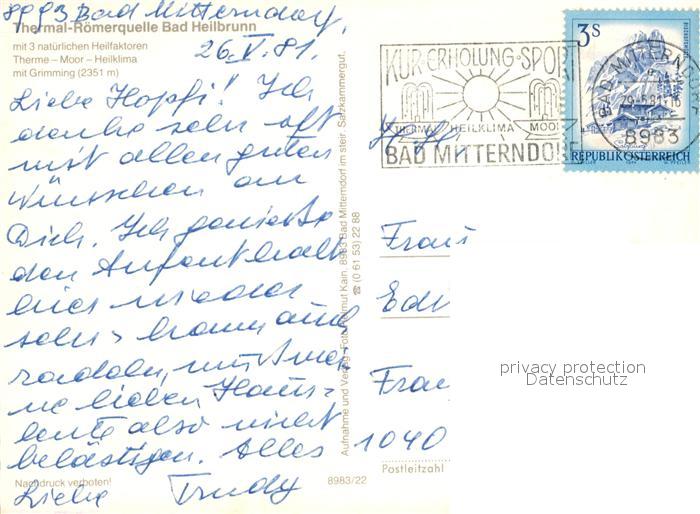 8993 Bad Mitterndorf,
Thermal-Römerquelle Bad Heilbrunn
mit 3 natürlichen Heilfaktoren
Therme – Moor – Heilklima
mit Grimming (2351 m)
26.V.81.
Liebe Hopfi! Ich
denke sehr oft
mit allen guten
Wünschen an
Dich. Ich geniesse
den Aufenthalt
hier wieder
sehr, kann auch
radeln, meine
lieben Haus=
leute also nicht
belästigen. Alles
Liebe Trudy
Nachdruck verboten!
8983/22
Aufnahme und Verlag: Foto Helmut Kain, 8983 Bad Mitterndorf im steir. Salzkammergut,
☎ (0 61 53) 22 88
KUR·ERHOLUNG·SPORT
THERME HEILKLIMA MOOR
BAD MITTERNDORF
3S
REPUBLIK ÖSTERREICH
BAD MITTERNDORF
29.-5.81-16
8983
Frau
Edu
Frau
1040
Postleitzahl
privacy protection
Datenschutz